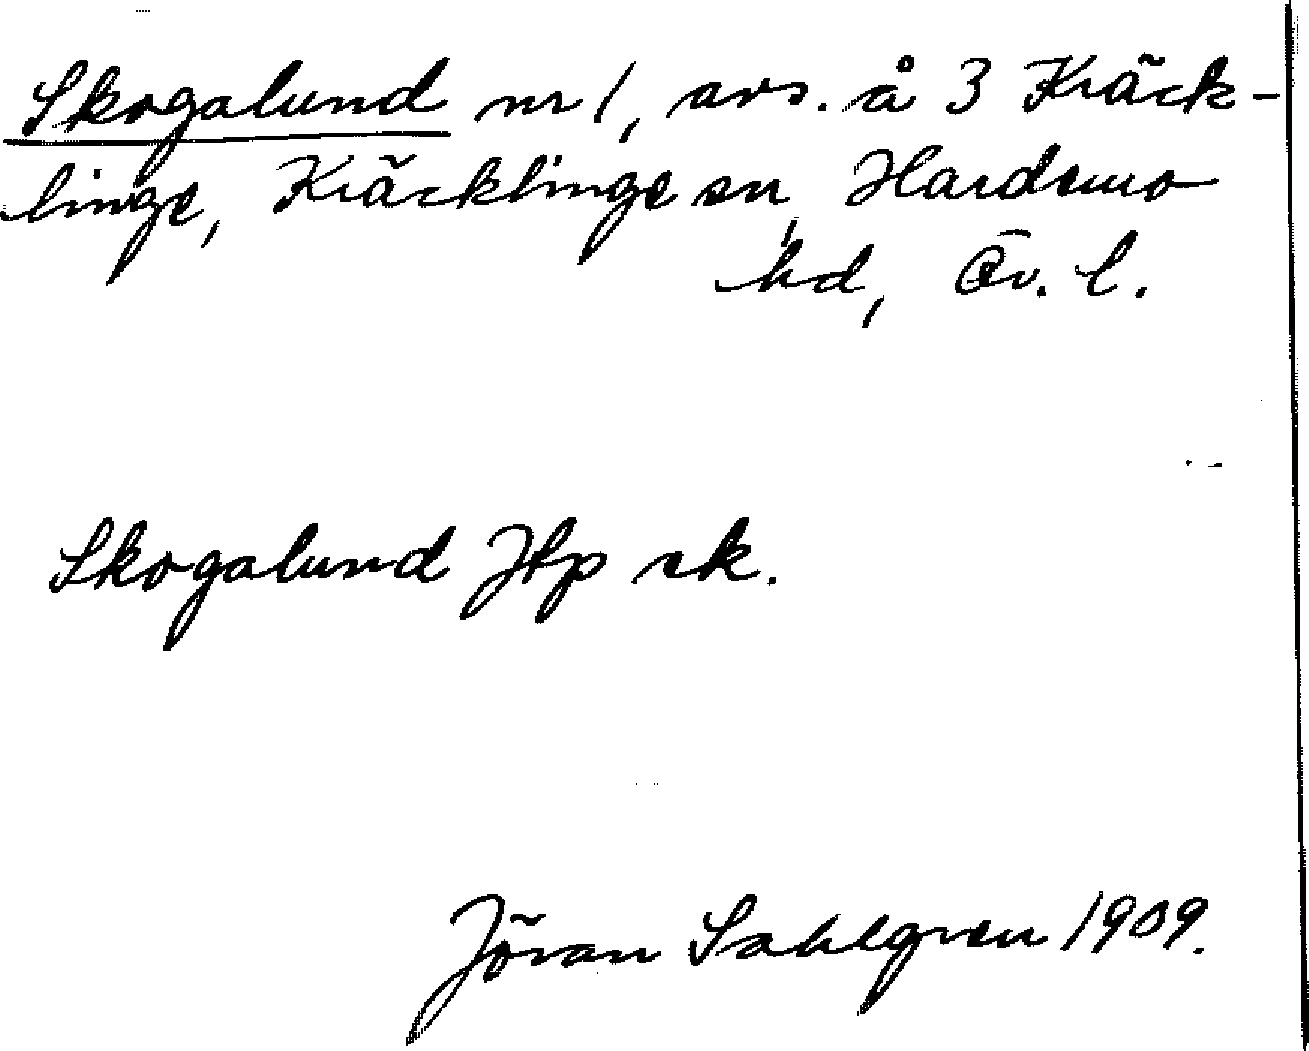 Skogalund nr 1, avs. å 3 Kräck-
linge, Kräcklinge sn, Hardemo
hd, Ör. l.
Skogalund Hfp sk.
Jöran Sahlgren 1909.